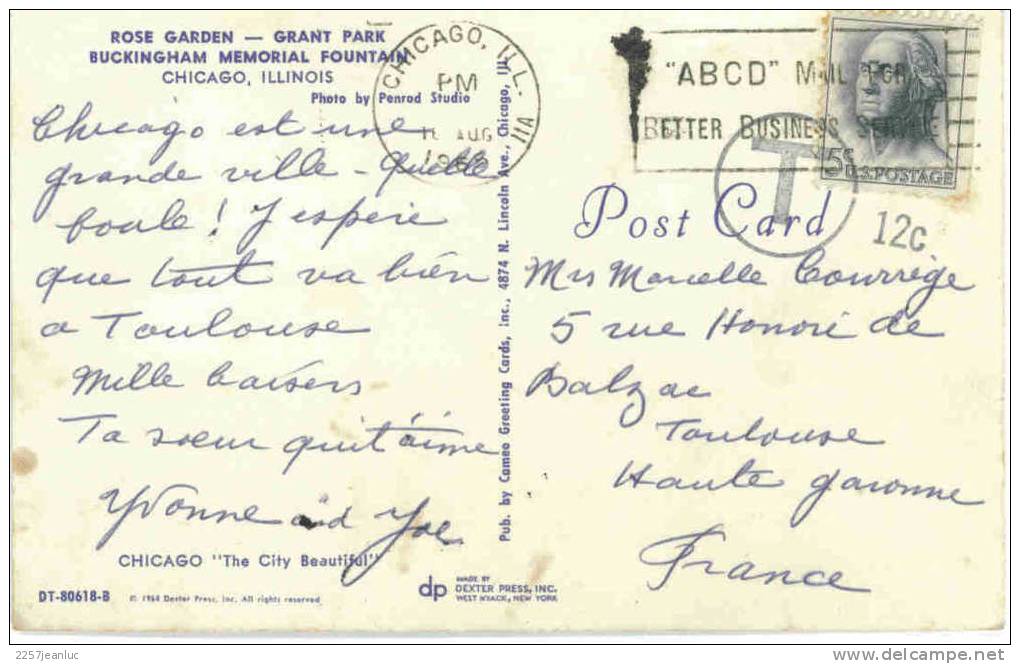 ROSE GARDEN — GRANT PARK
BUCKINGHAM MEMORIAL FOUNTAIN
CHICAGO, ILLINOIS
Photo by Penrod Studio
Chicago est une
grande ville - Quelle
foule! J'espère
que tout va bien
a Toulouse
Mille baisers
Ta soeur qui t'aime
Yvonne and Joe
CHICAGO "The City Beautiful"
DT-80618-B
© 1964 Dexter Press, Inc. All rights reserved
Pub. by Cameo Greeting Cards, Inc., 4874 N. Lincoln Ave., Chicago, Ill.
dp
MADE BY
DEXTER PRESS, INC.
WEST NYACK, NEW YORK
CHICAGO, ILL.
PM
AUG
11A
"ABCD" MAIL FOR
BETTER BUSINESS SERVICE
5c
U.S. POSTAGE
T
12c
Post Card
Mrs Marcelle Courrège
5 rue Honoré de
Balzac
Toulouse
Haute garonne
France
2257jeanluc
http://www.delcampe.net